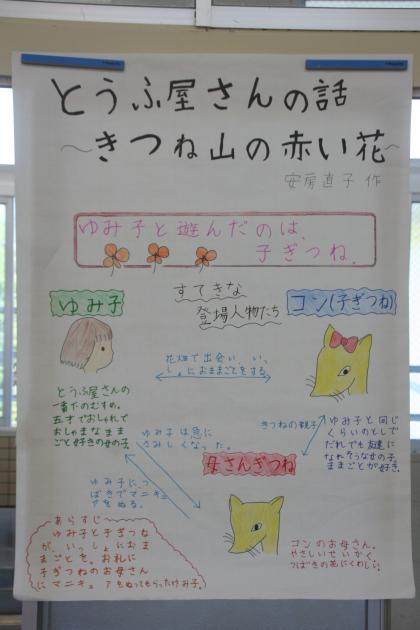 とうふ屋さんの話
〜きつね山の赤い花〜
安房直子 作
ゆみ子と遊んだのは、
子ぎつね。
すてきな
登場人物たち
ゆみ子
コン(子ぎつね)
花畑で出会い、いっ
しょにおままごとをする。
とうふ屋さんの
一番下のむすめ。
五才でおしゃれで
おしゃまなまま
ごと好きの女の子。
ゆみ子は急に
さみしくなった。
きつねの親子
ゆみ子と同じ
くらいのとしで
だれでも友達に
なれそうな女の子。
ままごとが好き。
母さんぎつね
ゆみ子に、つ
ばきでマニキュ
アをぬる。
あらすじ
ゆみ子と子ぎつね
が、いっしょにおま
まごとを。お礼に
子ぎつねのお母さん
にマニキュアをぬってもらったゆみ子。
コンのお母さん。
やさしいせいかく。
つばきの花にくわしい。